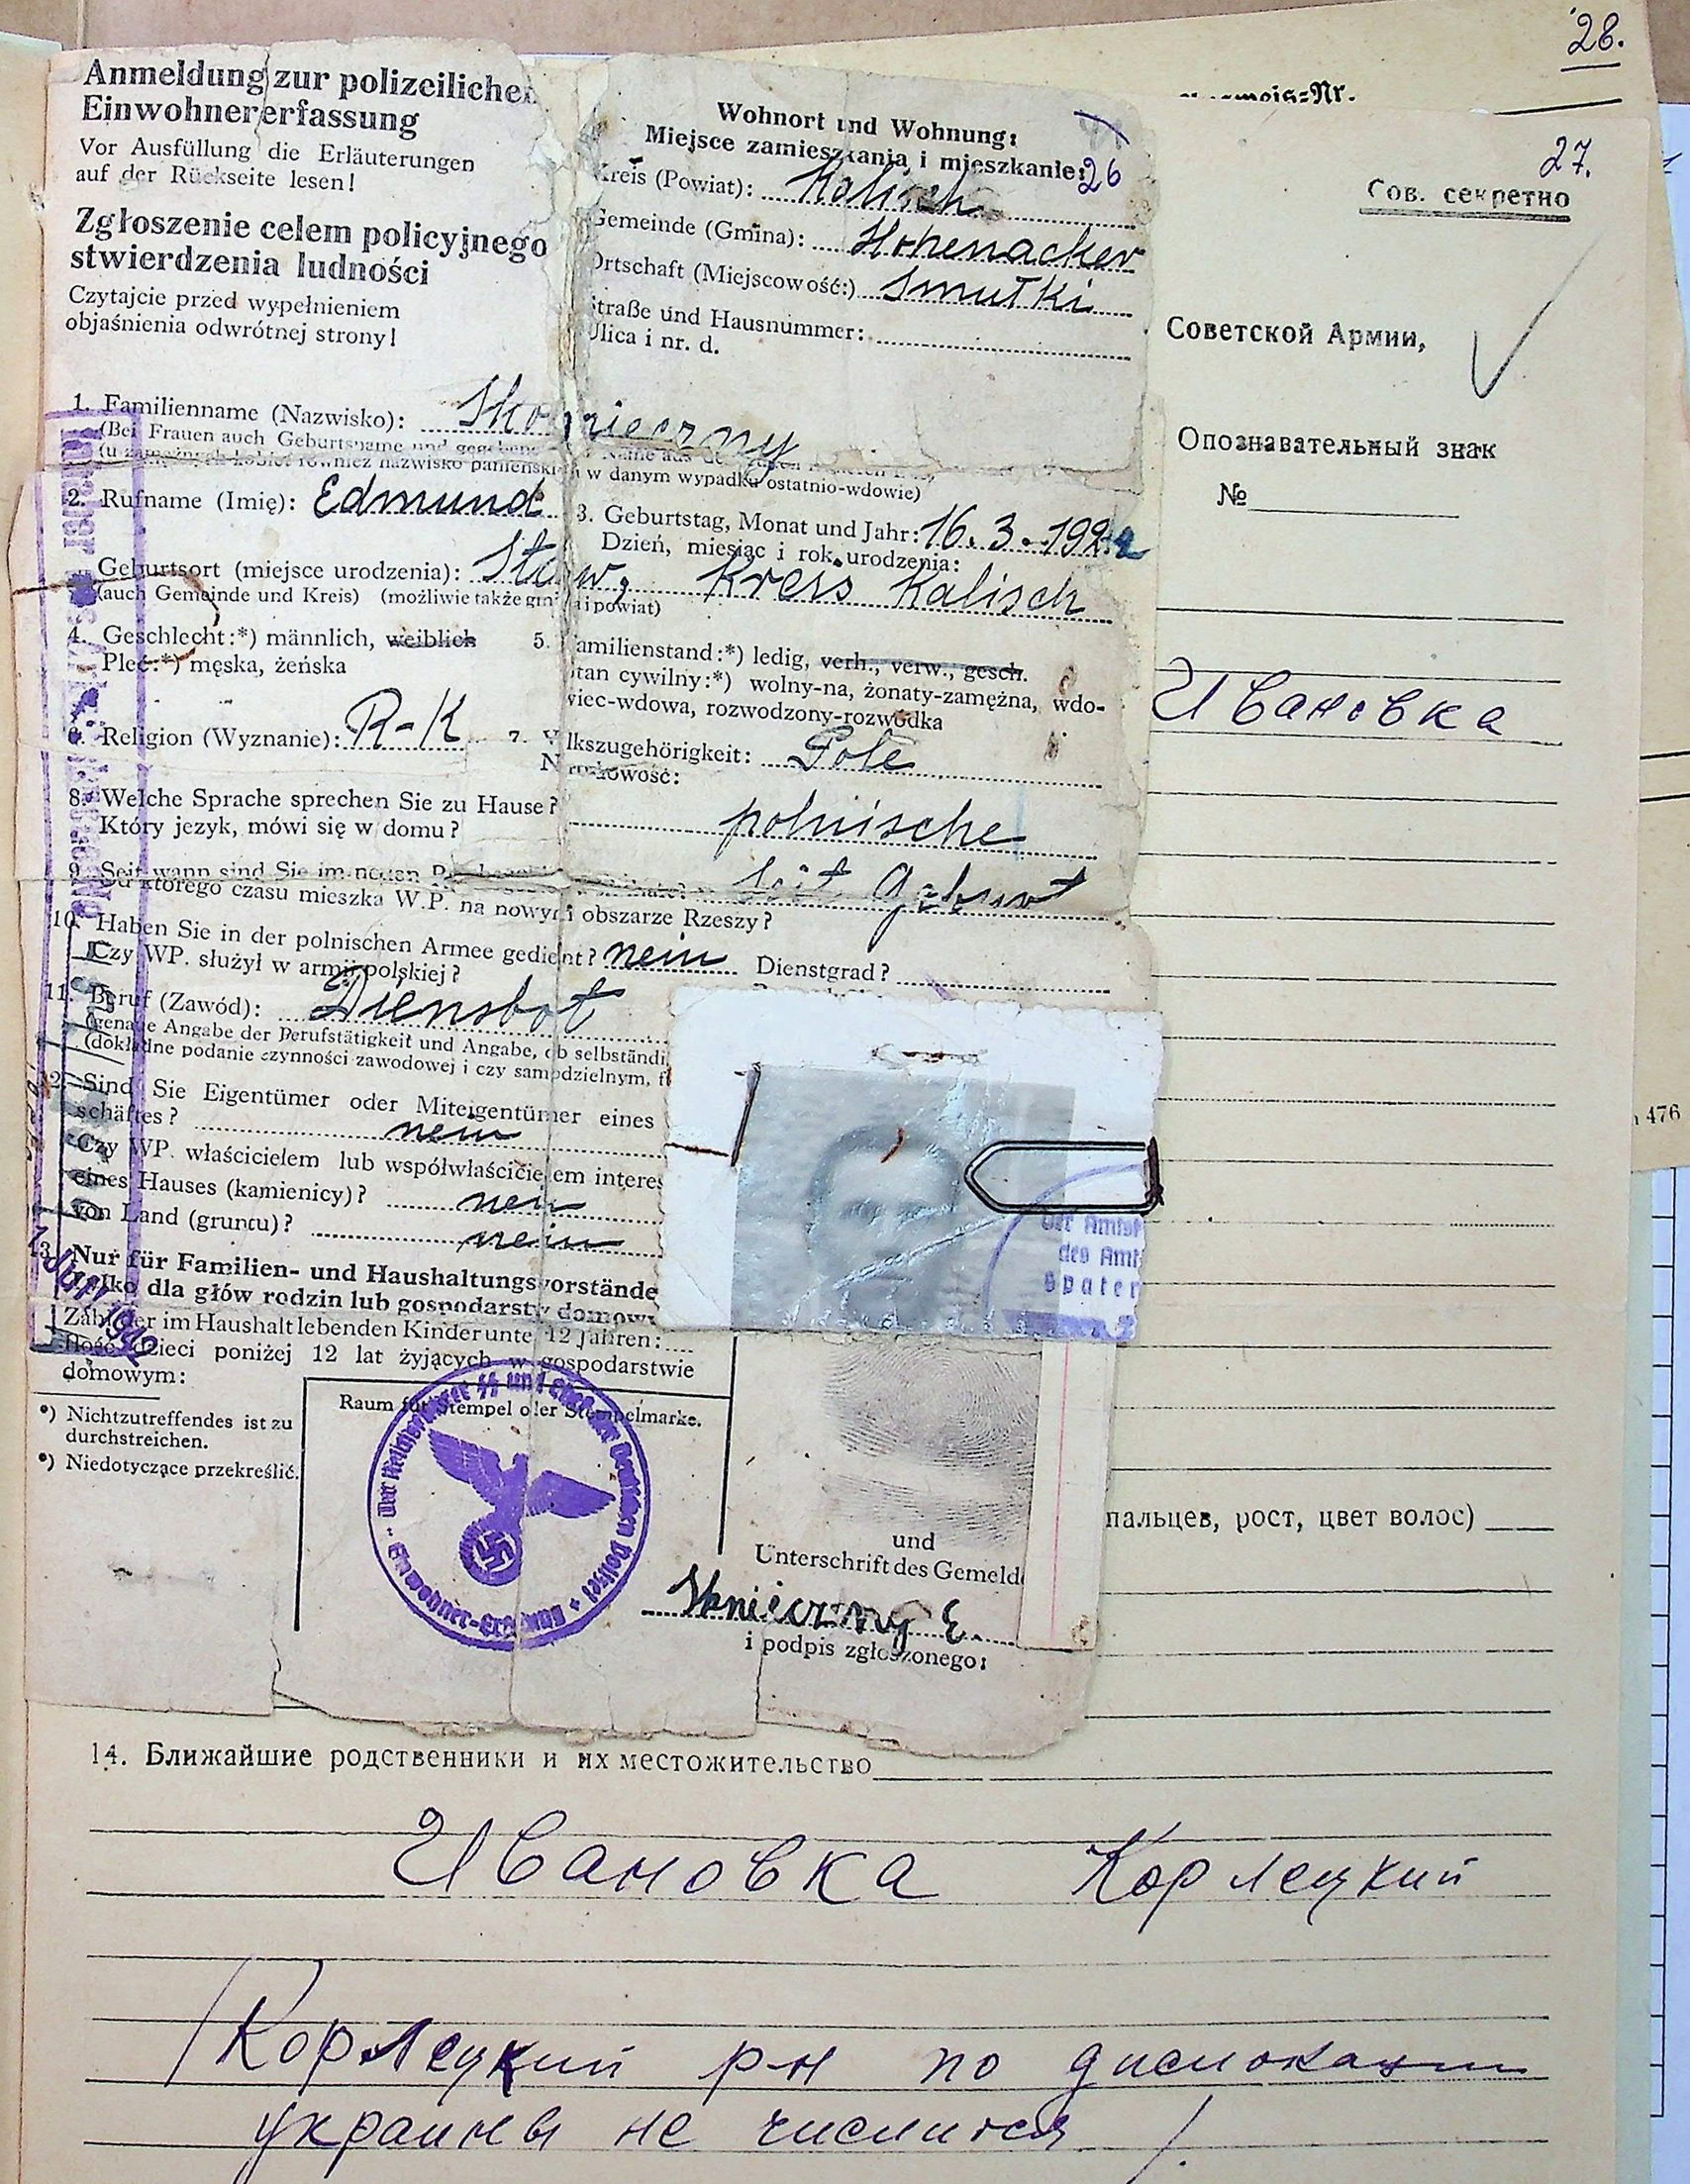 28.
27.
Сов. секретно
Советской Армии,
Опознавательный знак
№
Ивановка
476
пальцев, рост, цвет волос)
Anmeldung zur polizeilichen
Einwohnererfassung
Vor Ausfüllung die Erläuterungen
auf der Rückseite lesen!
Zgłoszenie celem policyjnego
stwierdzenia ludności
Czytajcie przed wypełnieniem
objaśnienia odwrótnej strony!
Wohnort und Wohnung:
Miejsce zamieszkania i mieszkanie:
26
Kreis (Powiat): Kalisch
Gemeinde (Gmina): Hohenacker
Ortschaft (Miejscowość:) Smutki
Straße und Hausnummer:
Ulica i nr. d.
1. Familienname (Nazwisko):
(Bei Frauen auch Geburtsname und
(u zamężnych kobiet również nazwisko panieńskie w danym wypadku ostatnio-wdowie)
2. Rufname (Imię): Edmund
3. Geburtstag, Monat und Jahr: 16.3.192
Dzień, miesiąc i rok urodzenia:
Geburtsort (miejsce urodzenia): Staw, Kreis Kalisch
(auch Gemeinde und Kreis) (możliwie także gmina i powiat)
4. Geschlecht:*) männlich, weiblich
Płeć:*) męska, żeńska
5. Familienstand:*) ledig, verh., verw., gesch.
stan cywilny:*) wolny-na, żonaty-zamężna, wdo-
wiec-wdowa, rozwodzony-rozwódka
6. Religion (Wyznanie): R-K
7. Volkszugehörigkeit: Pole
Narodowość:
8. Welche Sprache sprechen Sie zu Hause?
Który jezyk, mówi się w domu?
polnische
9. Seit wann sind Sie im neuen
seit Geburt
Od którego czasu mieszka W.P. na nowym obszarze Rzeszy?
10. Haben Sie in der polnischen Armee gedient? nein Dienstgrad?
Czy WP. służył w armji polskiej?
11. Beruf (Zawód): Diensbot
(genaue Angabe der Berufstätigkeit und Angabe, ob selbständi
(dokładne podanie czynności zawodowej i czy samodzielnym, f
12. Sind Sie Eigentümer oder Miteigentümer eines
schäftes? nein
Czy WP. właścicielem lub współwłaścicielem interes
eines Hauses (kamienicy)? nein
von Land (gruntu)? nein
13. Nur für Familien- und Haushaltungsvorstände
Tylko dla głów rodzin lub gospodarstw domow
Zahl der im Haushalt lebenden Kinder unter 12 Jahren:
Ilość dzieci poniżej 12 lat żyjących w gospodarstwie
domowym:
*) Nichtzutreffendes ist zu
durchstreichen.
*) Niedotyczące przekreślić.
Raum für Stempel oder Stempelmarke.
Der Reichsführer SS und Chef der Deutschen Polizei
Einwohner-Erfassung
des Amt
und
Unterschrift des Gemelde
i podpis zgłoszonego:
14. Ближайшие родственники и их местожительство
Ивановка Корлецкий
Корлецкий р-н по дислокации
украины не числится